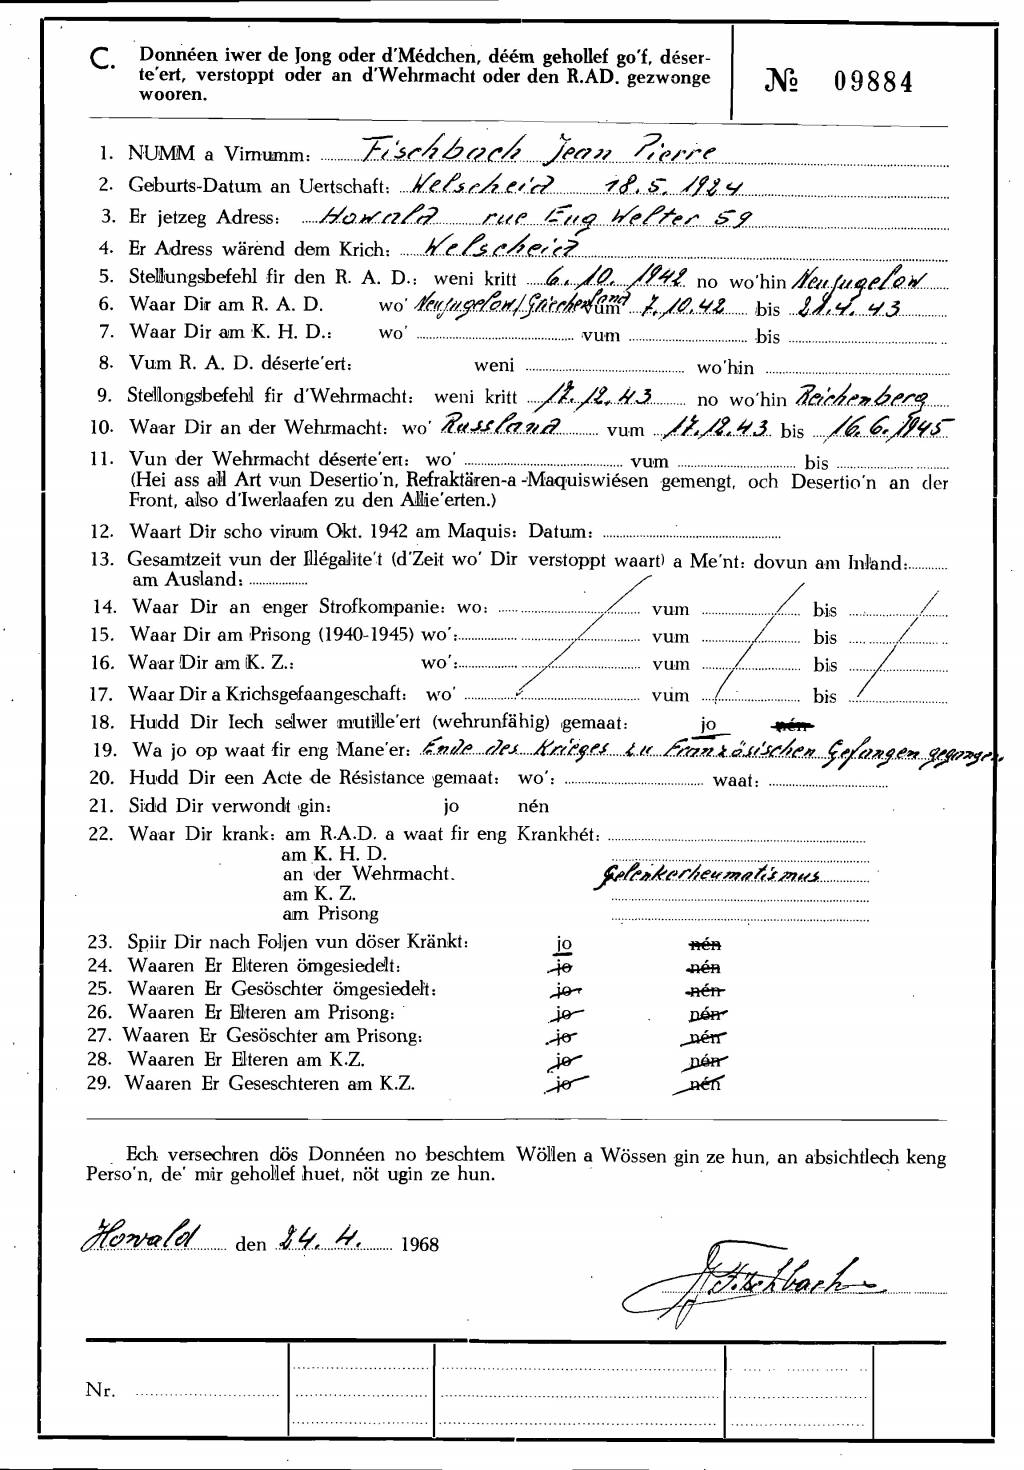 C. Donnéen iwer de Jong oder d'Médchen, déém gehollef go'f, déser-
te'ert, verstoppt oder an d'Wehrmacht oder den R.AD. gezwonge
wooren.
№ 09884
1. NUMM a Virnumm: Fischbach Jean Pierre
2. Geburts-Datum an Uertschaft: Welscheid 18.5.1924
3. Er jetzeg Adress: Howald rue Eug Welter 59
4. Er Adress wärend dem Krich: Welscheid
5. Stellungsbefehl fir den R. A. D.: weni kritt 6. 10. 1942 no wo'hin Neujugelow
6. Waar Dir am R. A. D. wo' Neujugelow/Griechenland vum 7.10.42 bis 21.4.43
7. Waar Dir am K. H. D.: wo' vum bis
8. Vum R. A. D. déserte'ert: weni wo'hin
9. Stellongsbefehl fir d'Wehrmacht: weni kritt 17.12.43 no wo'hin Reichenberg
10. Waar Dir an der Wehrmacht: wo' Russland vum 17.12.43 bis 16.6.1945
11. Vun der Wehrmacht déserte'ert: wo' vum bis
(Hei ass all Art vun Desertio'n, Refraktären-a-Maquiswiésen gemengt, och Desertio'n an der
Front, also d'Iwerlaafen zu den Allie'erten.)
12. Waart Dir scho virum Okt. 1942 am Maquis: Datum:
13. Gesamtzeit vun der Illégalite't (d'Zeit wo' Dir verstoppt waart) a Me'nt: dovun am Inland:
am Ausland:
14. Waar Dir an enger Strofkompanie: wo: vum bis
15. Waar Dir am Prisong (1940-1945) wo': vum bis
16. Waar Dir am K. Z.: wo': vum bis
17. Waar Dir a Krichsgefaangeschaft: wo' vum bis
18. Hudd Dir Iech selwer mutille'ert (wehrunfähig) gemaat: jo nén
19. Wa jo op waat fir eng Mane'er: Ende des Krieges zu Französischen Gefangen gegangen.
20. Hudd Dir een Acte de Résistance gemaat: wo': waat:
21. Sidd Dir verwondt gin: jo nén
22. Waar Dir krank: am R.A.D. a waat fir eng Krankhét:
am K. H. D.
an der Wehrmacht. Gelenkerheumatismus
am K. Z.
am Prisong
23. Spiir Dir nach Foljen vun döser Kränkt: jo nén
24. Waaren Er Elteren ömgesiedelt: jo nén
25. Waaren Er Gesöschter ömgesiedelt: jo nén
26. Waaren Er Elteren am Prisong: jo nén
27. Waaren Er Gesöschter am Prisong: jo nén
28. Waaren Er Elteren am K.Z. jo nén
29. Waaren Er Geseschteren am K.Z. jo nén
Ech versechren dös Donnéen no beschtem Wöllen a Wössen gin ze hun, an absichtlech keng
Perso'n, de' mir gehollef huet, nöt ugin ze hun.
Howald den 24. 4. 1968
Fischbach
Nr.